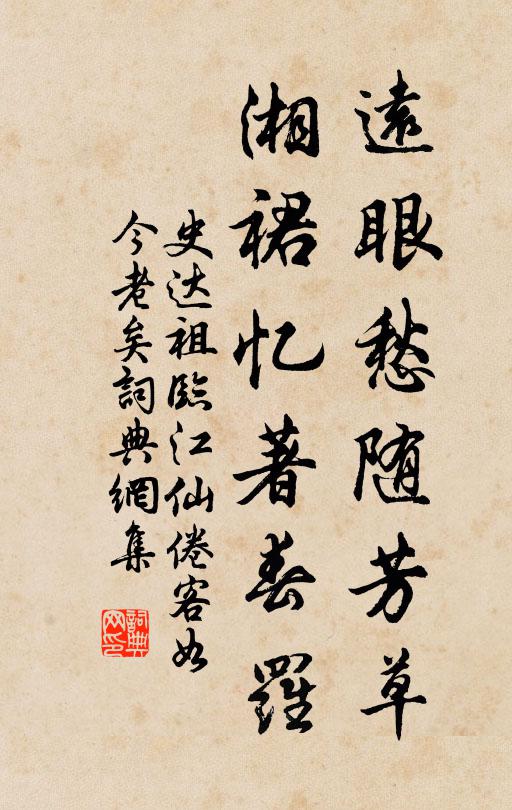 遠眼愁随芳草
湘裙忆著春羅
史达祖臨江仙倦客如
今老矣詞典網集
詞典网印